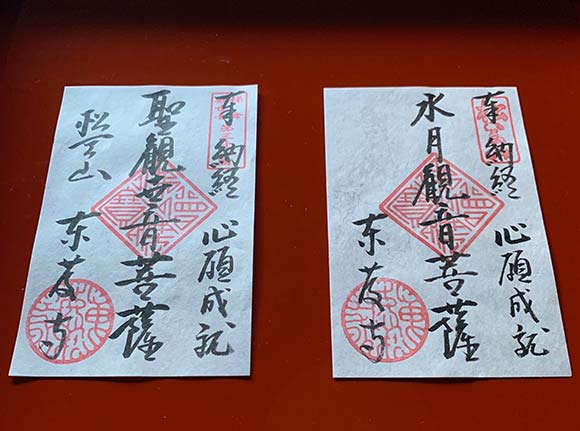 奉納経 心願成就
聖觀世音菩薩
松岡山 東慶寺
奉納経 心願成就
水月觀音菩薩
東慶寺